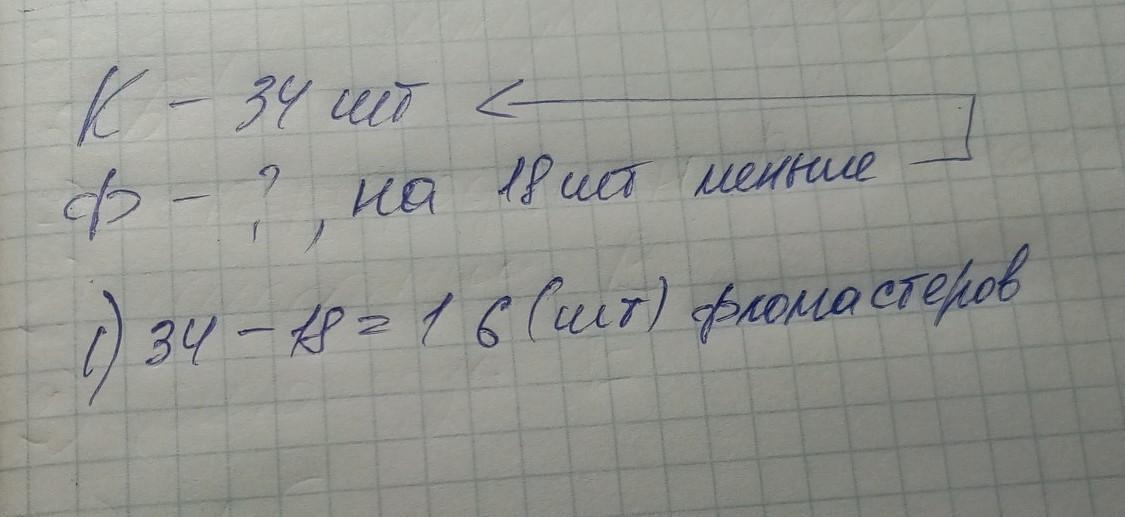 К - 34 шт
Ф - ?, на 18 шт меньше
1) 34 - 18 = 16 (шт) фломастеров